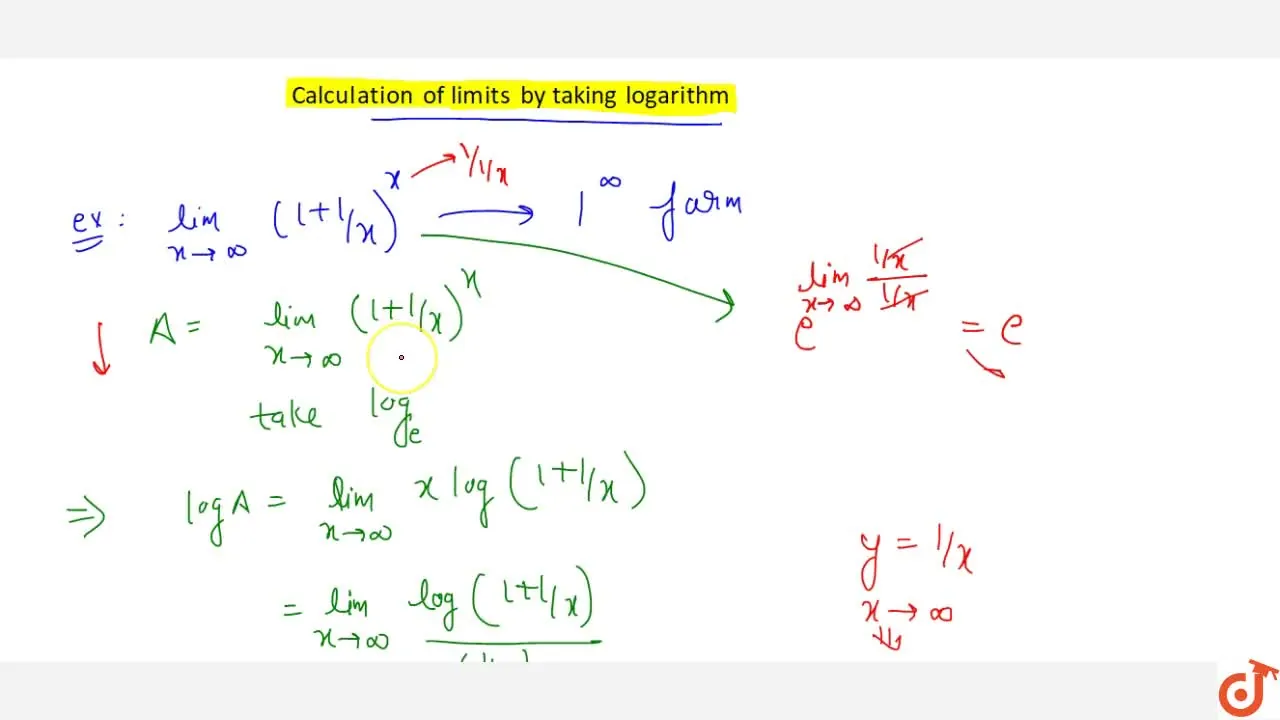 Calculation of limits by taking logarithm
ex : lim x→∞ (1+1/x)^x → 1/1/x → 1^∞ farm
A = lim x→∞ (1+1/x)^x
e^(lim x→∞ (1/x)/(1/x)) = e
take log_e
⇒ log A = lim x→∞ x log (1+1/x)
= lim x→∞ log (1+1/x)
y = 1/x
x → ∞